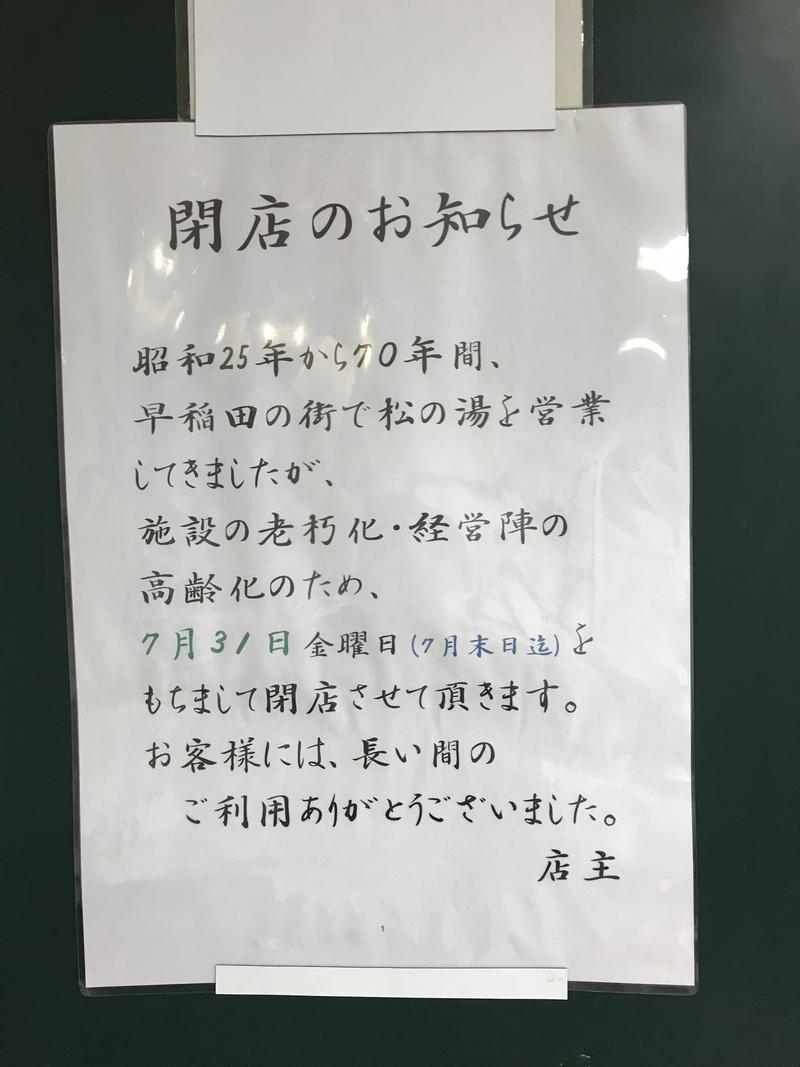 閉店のお知らせ
昭和25年から70年間、
早稲田の街で松の湯を営業
してきましたが、
施設の老朽化・経営陣の
高齢化のため、
7月31日金曜日(7月末日迄)を
もちまして閉店させて頂きます。
お客様には、長い間の
ご利用ありがとうございました。
店主
1